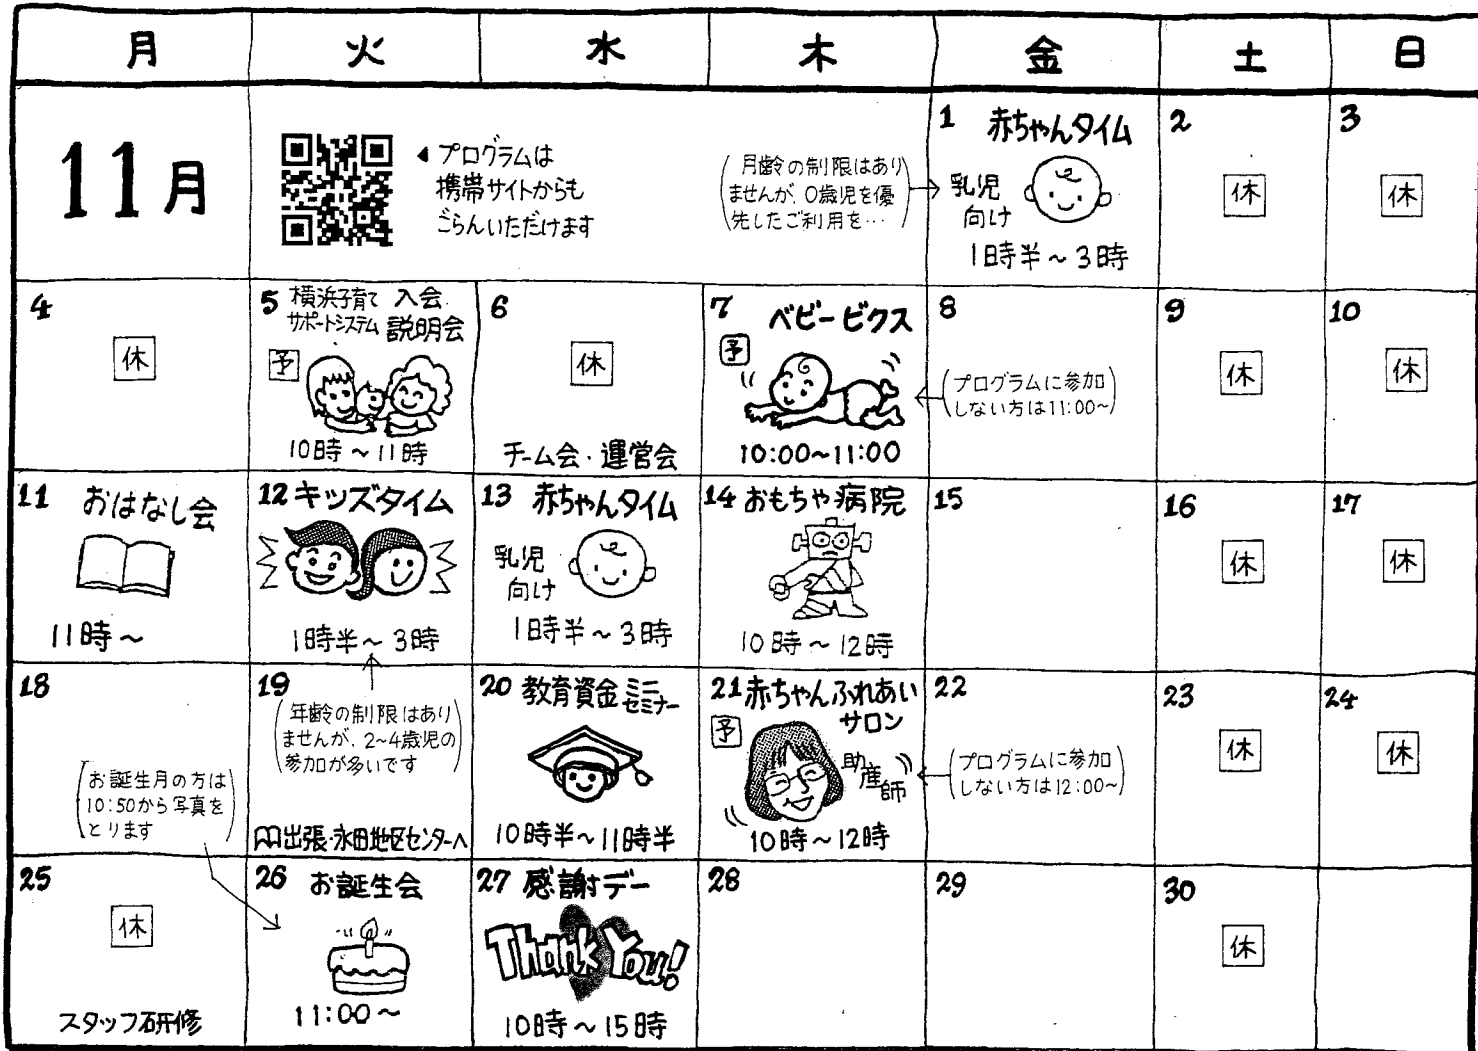 月 火 水 木 金 土 日
11月
◀プログラムは
携帯サイトからも
ごらんいただけます
(月齢の制限はあり
ませんが、0歳児を優
先したご利用を…)
1 赤ちゃんタイム
乳児
向け
1時半～3時
2
休
3
休
4
休
5 横浜子育て
サポートシステム
入会
説明会
予
10時～11時
6
休
チーム会・運営会
7 ベビービクス
予
10:00~11:00
8
(プログラムに参加
しない方は11:00~)
9
休
10
休
11 おはなし会
11時～
12 キッズタイム
1時半～3時
13 赤ちゃんタイム
乳児
向け
1時半～3時
14 おもちゃ病院
10時～12時
15
16
休
17
休
18
(お誕生月の方は
10:50から写真を
とります)
19
(年齢の制限はあり
ませんが、2~4歳児の
参加が多いです)
出張・永田地区センターへ
20 教育資金 ミニ
セミナー
10時半～11時半
21 赤ちゃんふれあい
サロン
予
助産師
10時～12時
22
(プログラムに参加
しない方は12:00~)
23
休
24
休
25
休
スタッフ研修
26 お誕生会
11:00～
27 感謝デー
Thank You!
10時～15時
28
29
30
休